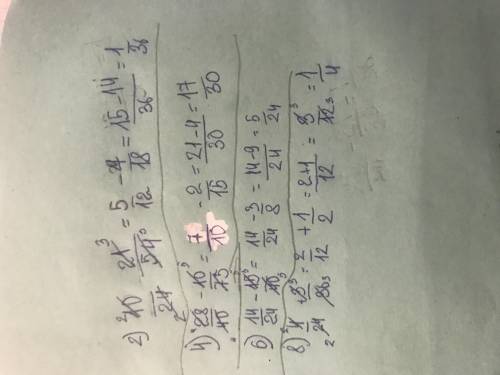 2) 10/24 - 21/54 = 5/12 - 7/18 = 15-14/36 = 1/36
4) 28/40 - 10/75 = 7/10 - 2/15 = 21-4/30 = 17/30
6) 14/24 - 18/48 = 14/24 - 3/8 = 14-9/24 = 5/24
8) 4/24 + 3/36 = 2/12 + 1/2 = 2+1/12 = 3/12 = 1/4